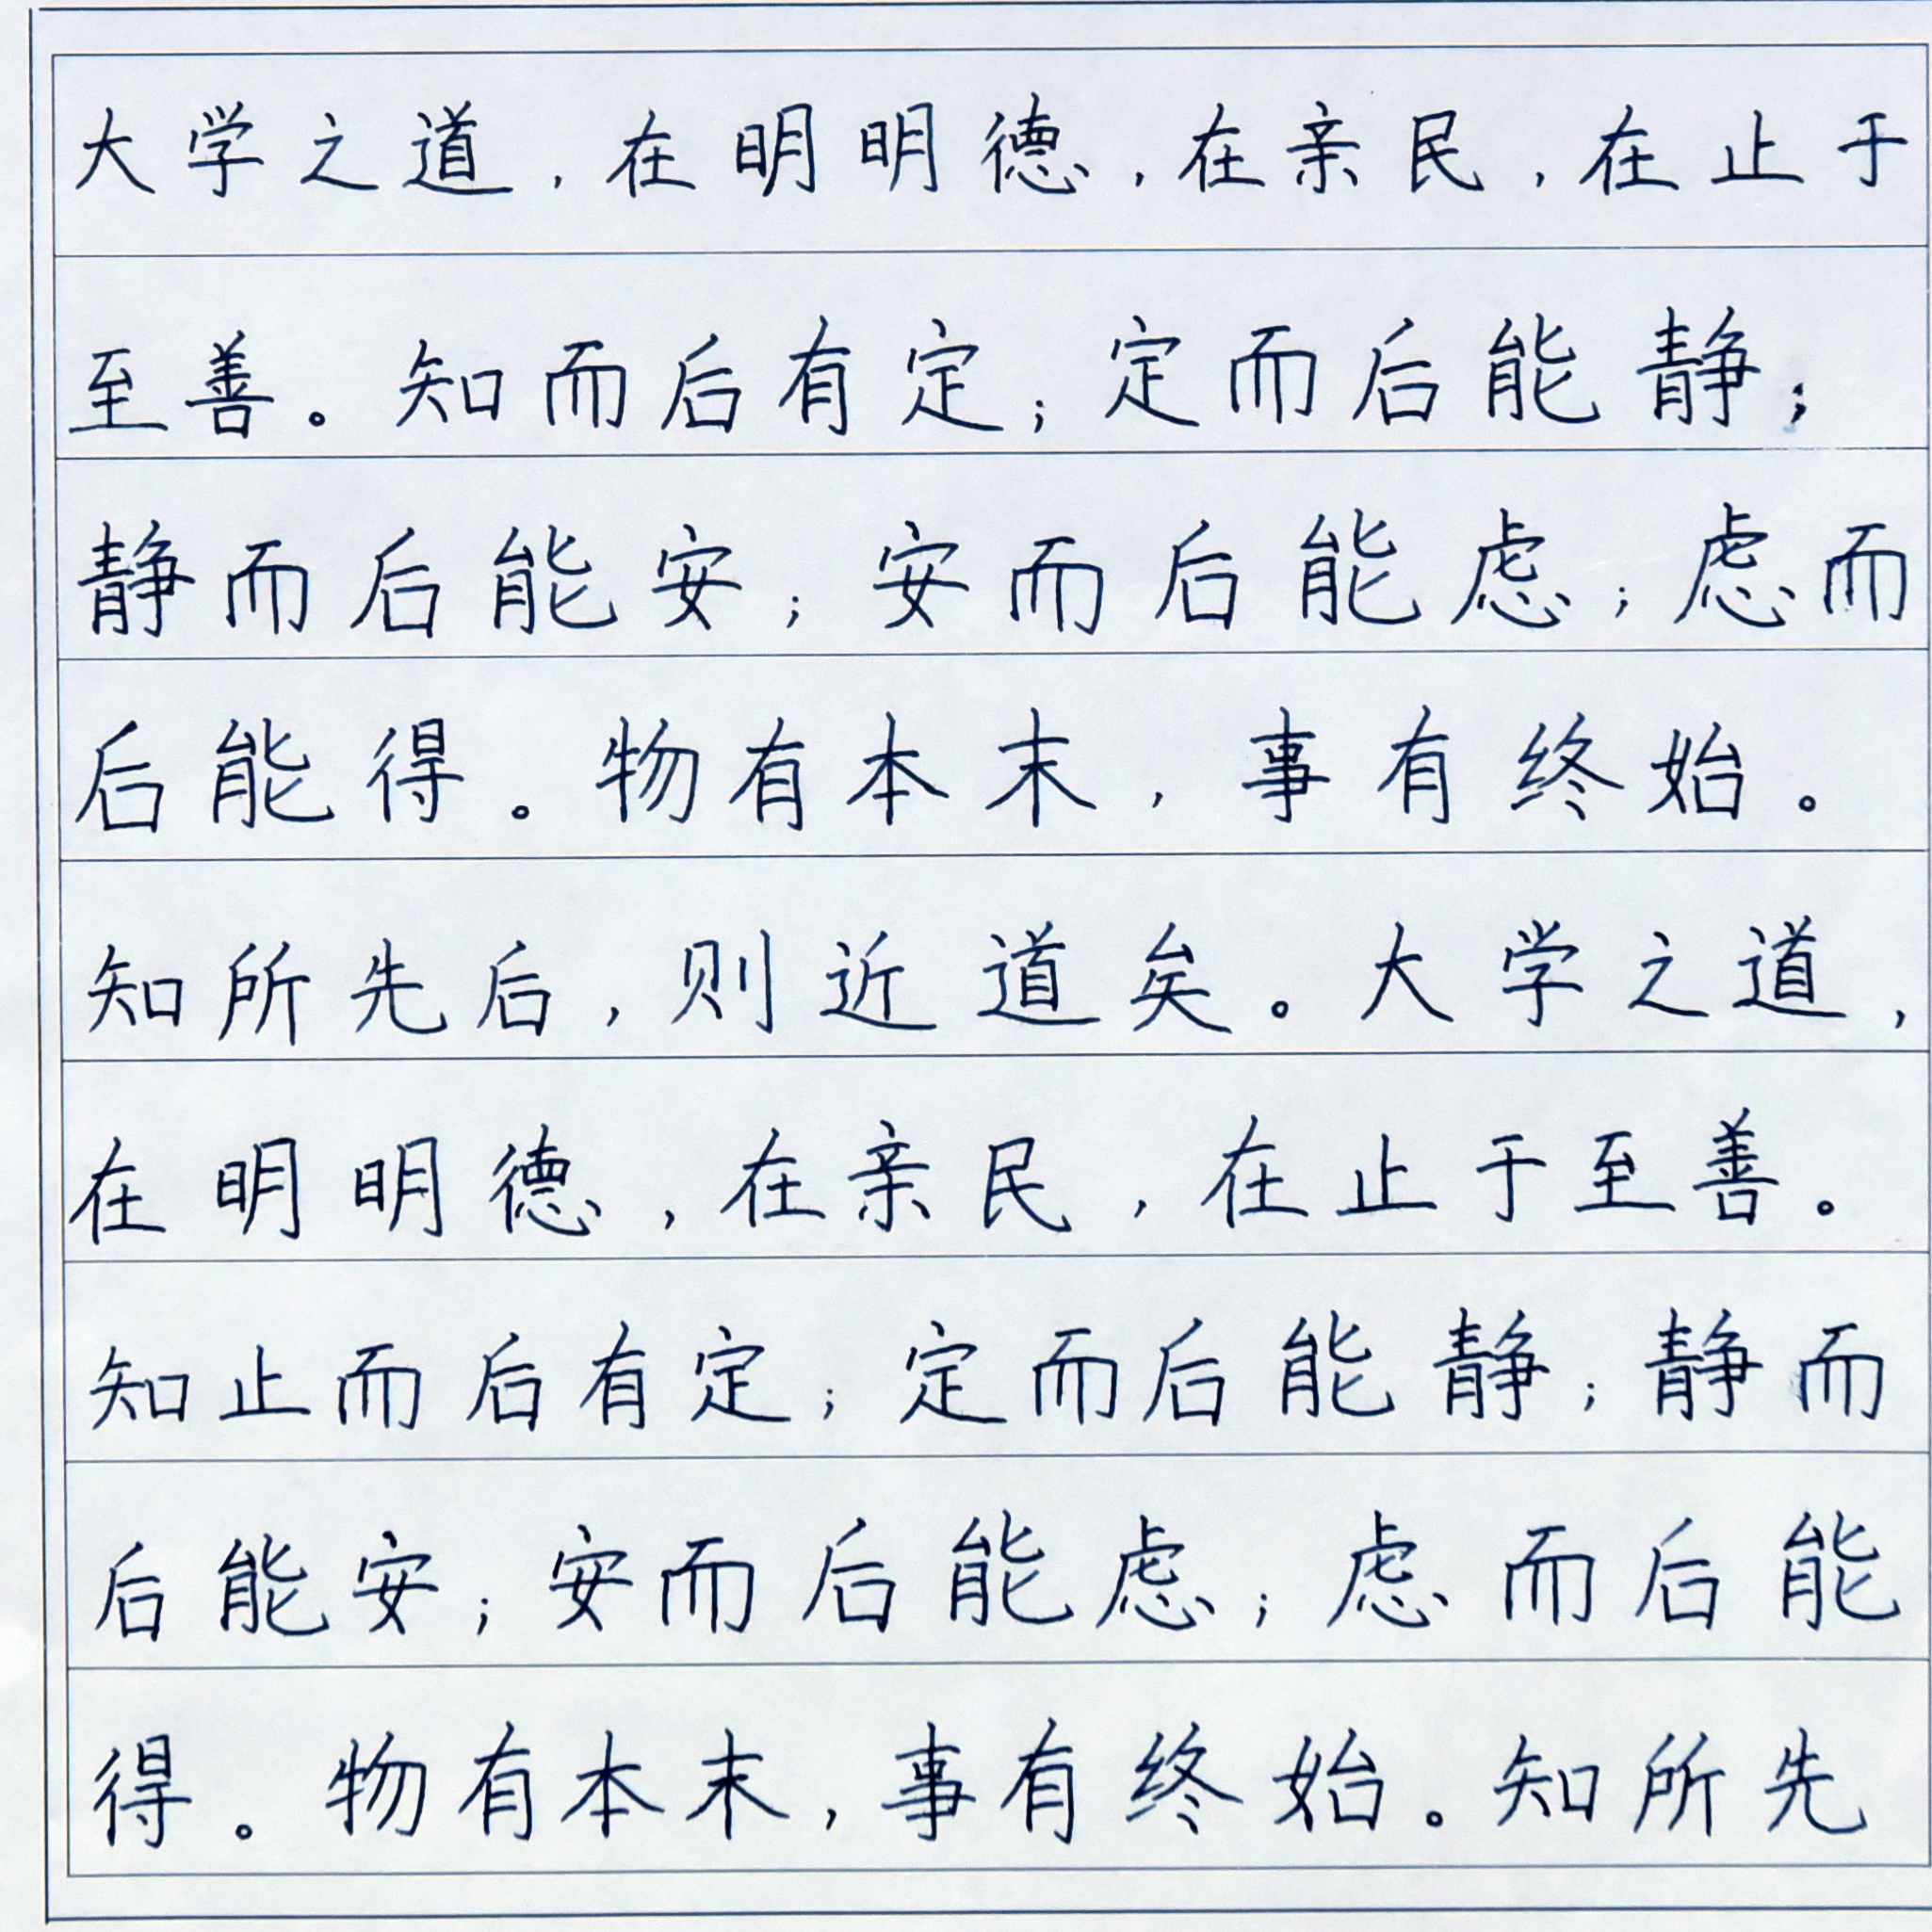 大学之道，在明明德，在亲民，在止于
至善。知而后有定；定而后能静；
静而后能安；安而后能虑；虑而
后能得。物有本末，事有终始。
知所先后，则近道矣。大学之道，
在明明德，在亲民，在止于至善。
知止而后有定；定而后能静；静而
后能安；安而后能虑；虑而后能
得。物有本末，事有终始。知所先